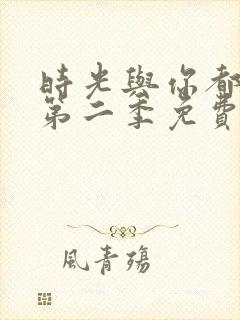 時光與你都
第二季免費
風青殤